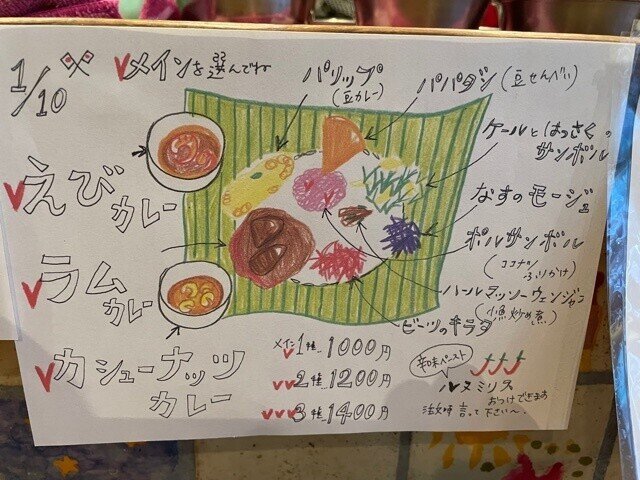 1/10
メインを選んでね
パリップ
(豆カレー)
パパダン(豆せんべい)
ケールとはっさくの
サンボル
なすのモージュ
ポルサンボル
(ココナツ
ふりかけ)
ハールマッソーウェンジャン
(魚炒め煮)
ビーツのキラタ
えび
カレー
ラム
カレー
カシューナッツ
カレー
メイン1種…1000円
2種…1200円
3種…1400円
辛味ペースト
ルヌミリス
おつけできます
注文時言って下さい〜